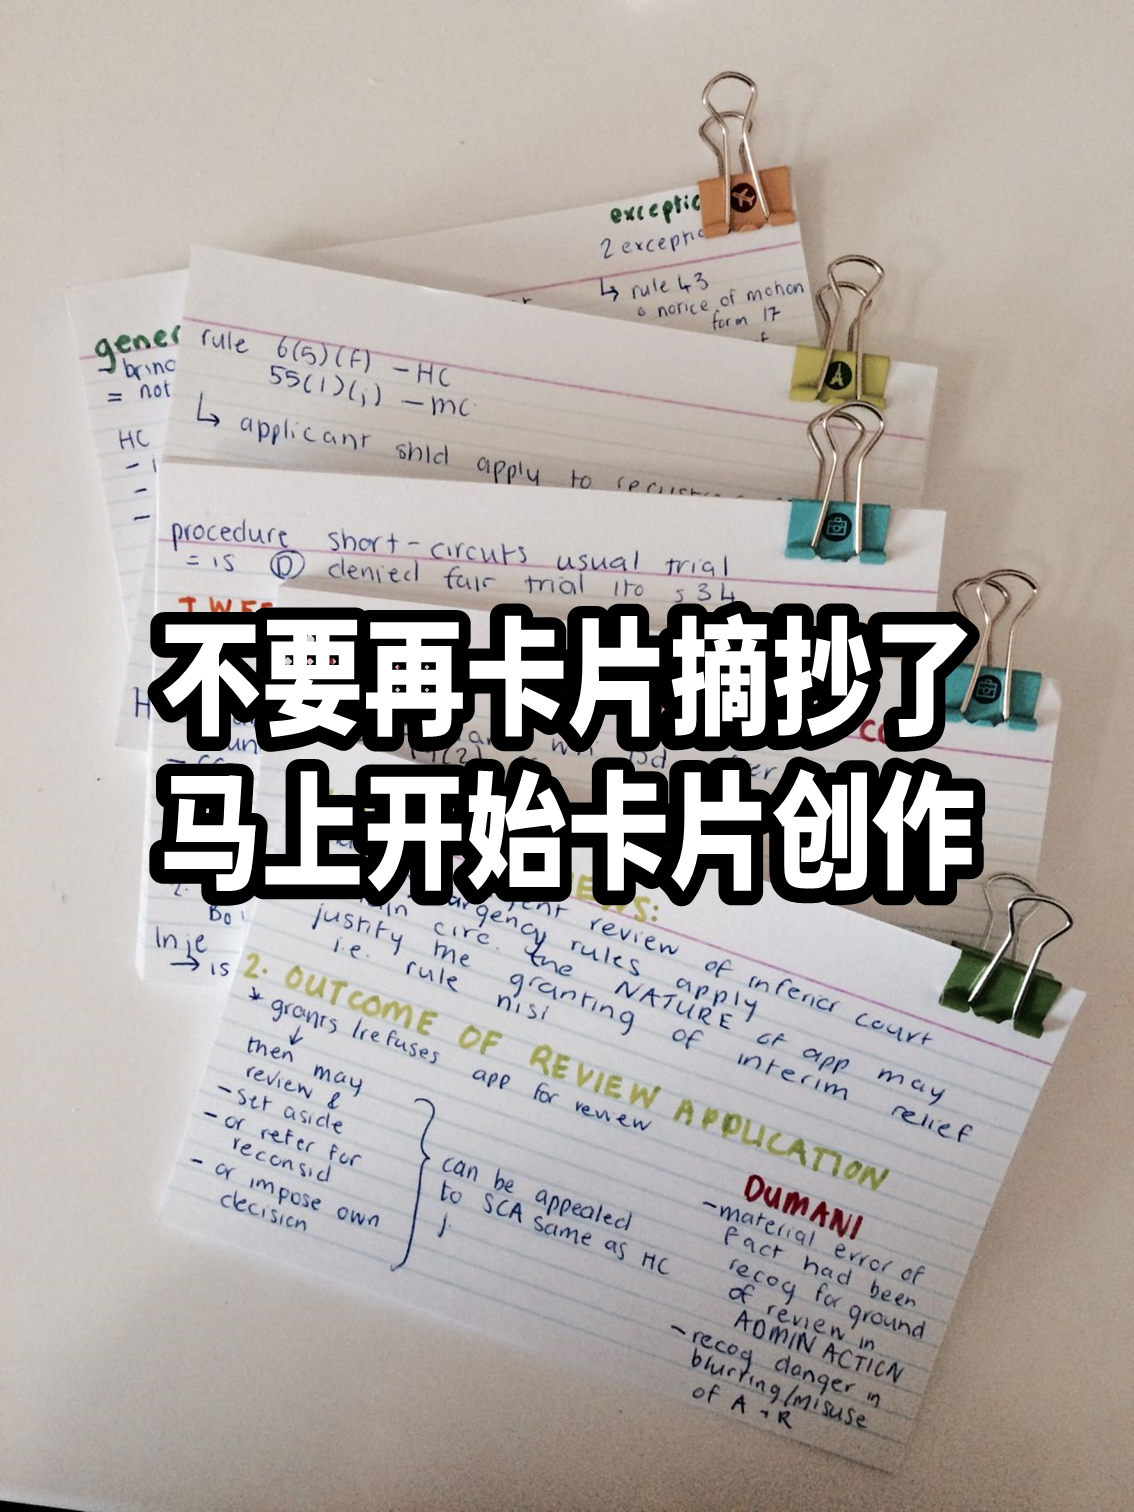 exceptio
2 exceptio
↳ rule 43
notice of motion
form 17
gener
– brinc
= not
HC
rule 6(5)(f) – HC
55(1)(j) – mc
↳ applicant shld apply to
procedure short-circuits usual trial
= is Ⓓ denied fair trial ito s34
不要再卡片摘抄了
马上开始卡片创作
EWS:
review of inferior court
urgency rules apply
circ. the NATURE of app may
justify the granting of interim relief
i.e. rule nisi
Inje
→ is
2. OUTCOME OF REVIEW APPLICATION
* grants/refuses app for review
↓
then may
review &
– set aside
– or refer for
reconsid
– or impose own
decision
can be appealed
to SCA same as HC
DUMANI
– material error of
fact had been
recog for ground
of review in
ADMIN ACTION
– recog danger in
blurring/misuse
of A + R